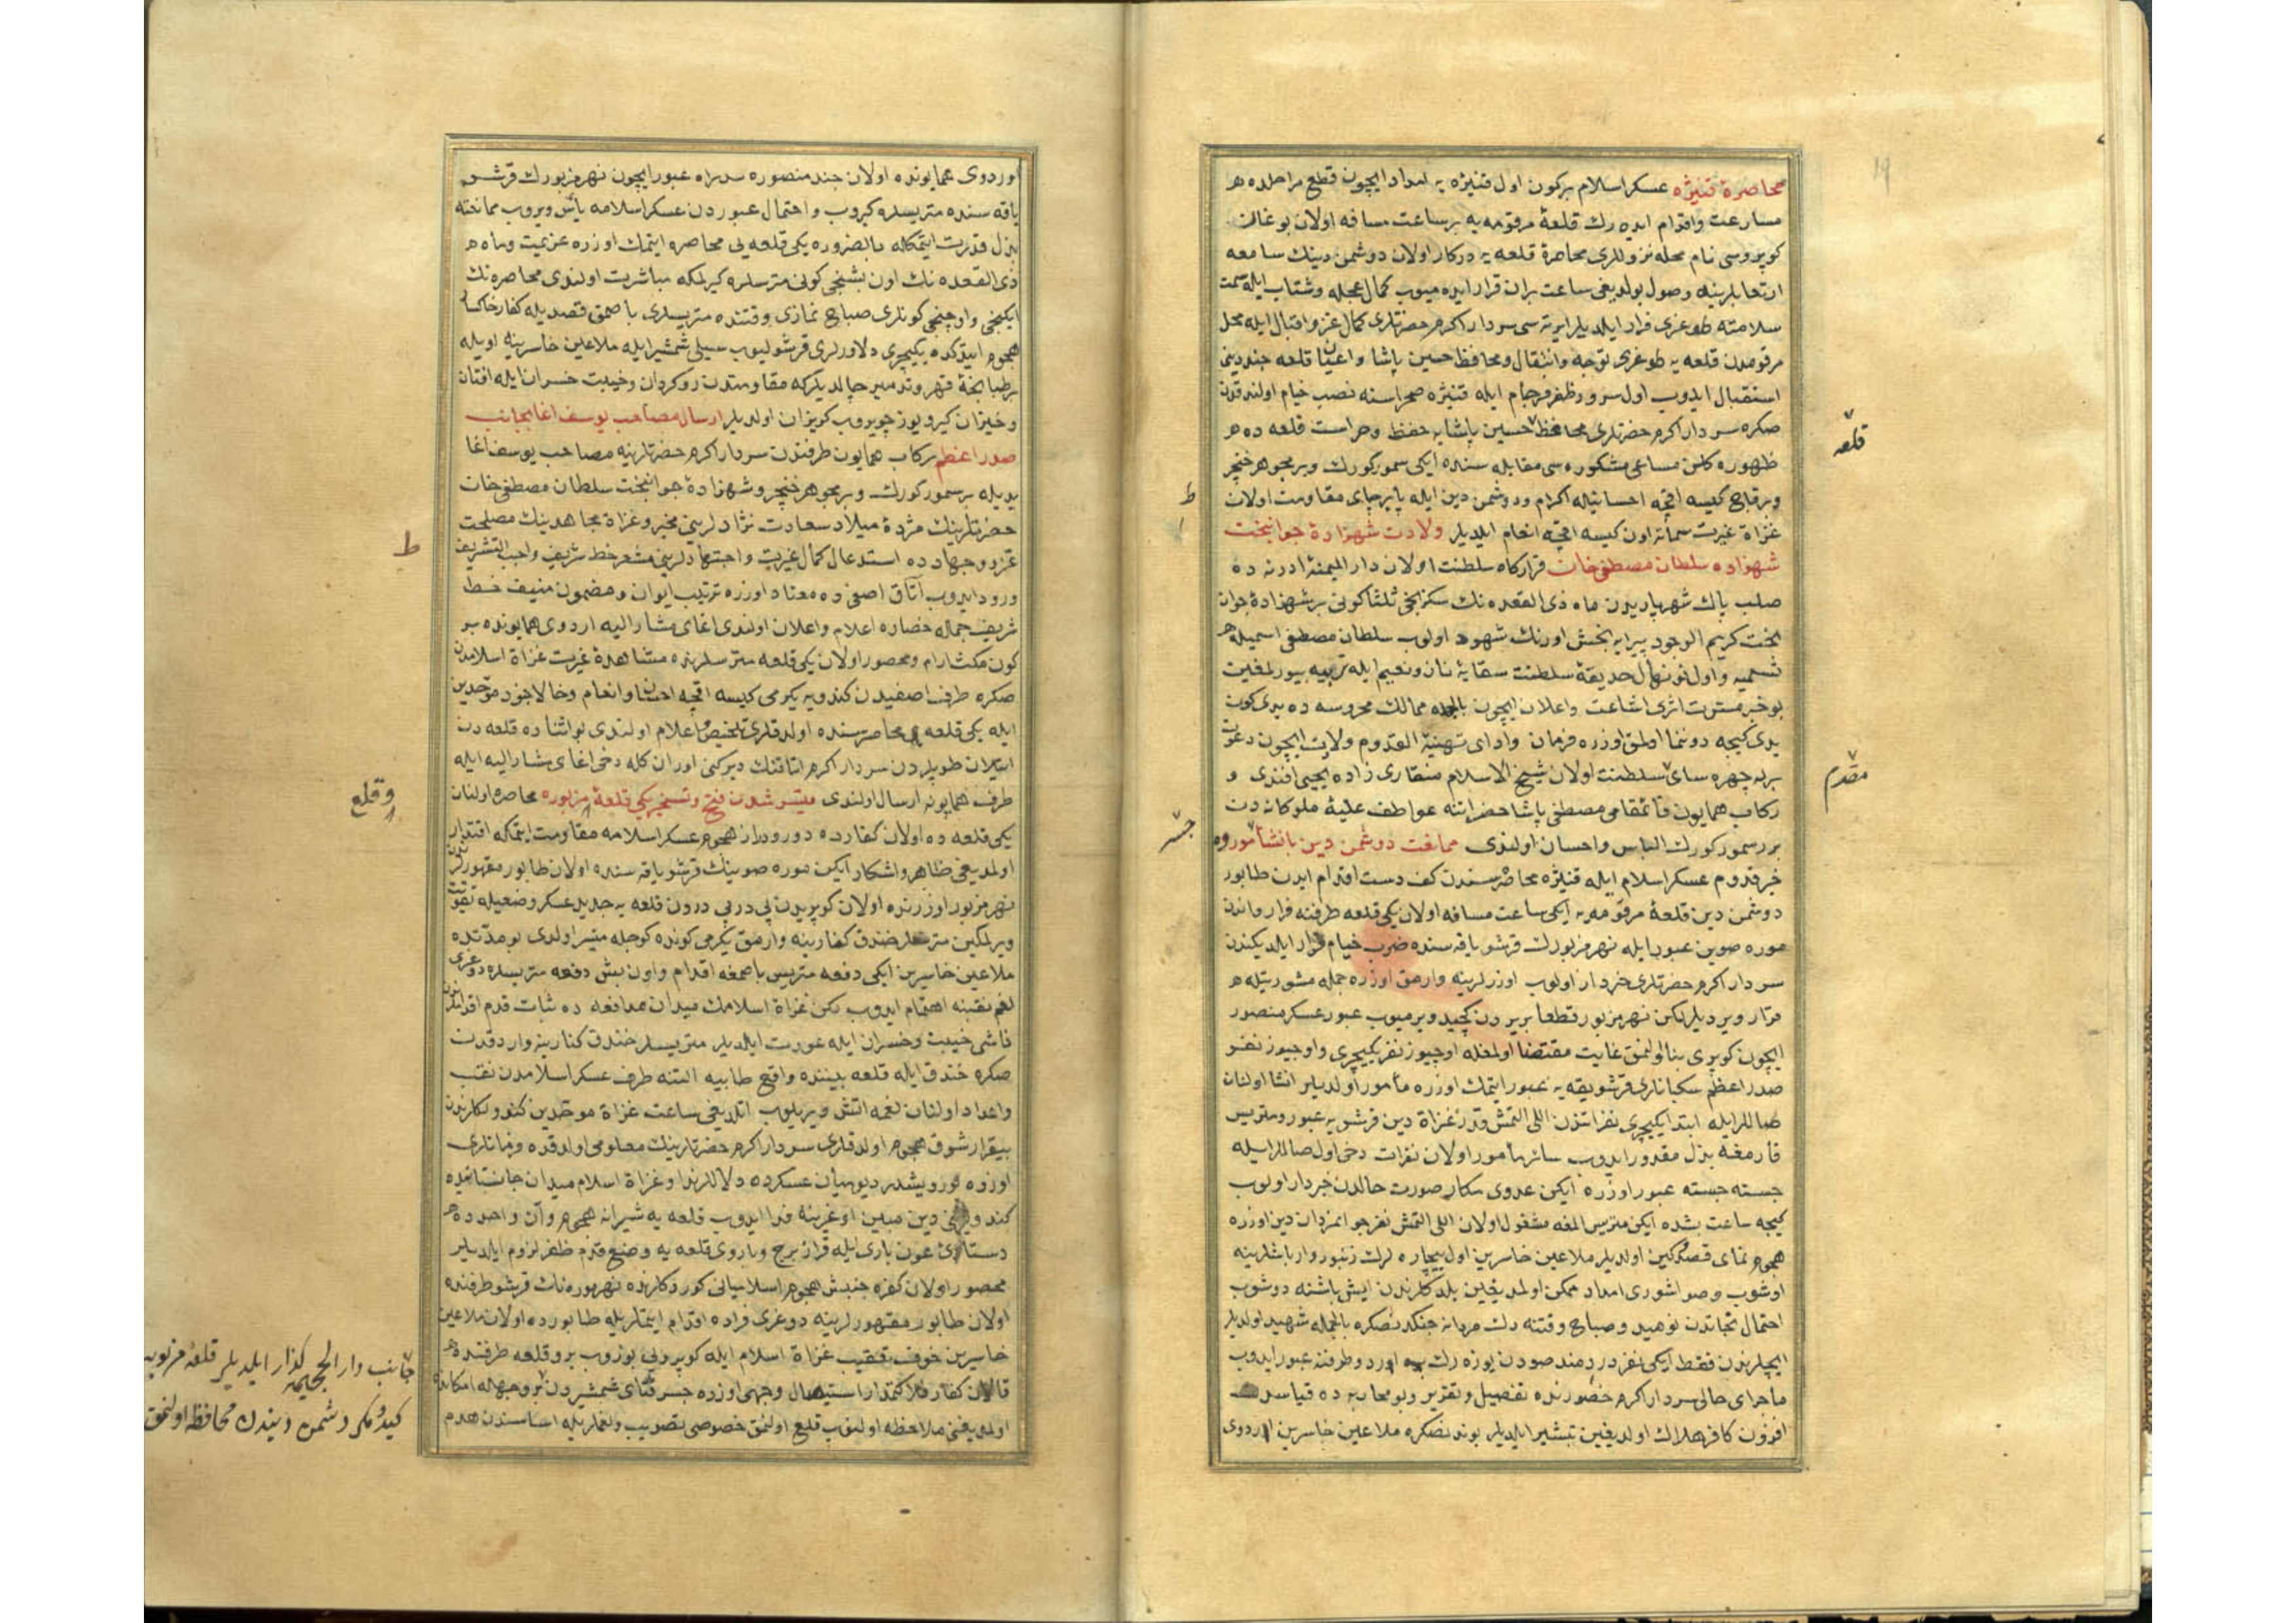 19
محاصرهٔ قنیژه عسکر اسلام برکون اول قنیژه یه امداد ایچون قطع مراحلده
مسارعت واقدام ایده رك قلعهٔ مرقومه یه برساعت مسافه اولان بوغالق
کوپروسی نام محله نزوللری محاصرهٔ قلعه یه درکار اولان دوشمن دینك سامعه
وصول بولدیغی ساعت بران قرار ایده میوب کمال عجله وشتاب ایله سمت
سلامته طوغری فرار ایلدیلر ایرته سی سردار اکرم حضرتلری کمال عز واقبال ایله محل
مرقومدن قلعه یه طوغری توجه وانتقال ومحافظ حسین پاشا واعیان قلعه
استقبال ایدوب اول سرور ظفر فرجام ایله قنیژه صحراسنه نصب خیام اولندقدن
صکره سردار اکرم حضرتلری محافظ حسین پاشایه حفظ وحراست قلعه ده
ظهوره کلن مساعی مشکوره سی مقابله سنده ایکی سمور کورك وبر مجوهر خنجر
وبرقاچ کیسه اقچه احسانیله اکرام ودوشمن دین ایله پابرجای مقاومت اولان
غزاة غیرت سماته اون کیسه اقچه انعام ایلدیلر ولادت شهزادهٔ جوانبخت
شهزاده سلطان مصطفی خان قرارکاه سلطنت اولان دار المیمنة ادرنه ده
صلب پاك شهریاریدن ماه ذی القعده نك سکزنجی ثلثا کونی برشهزادهٔ جوان
بخت کریم الوجود پیرایه بخش اورنك شهود اولوب سلطان مصطفی اسمیله
تسمیه واول نونهال حدیقهٔ سلطنت سقایهٔ ناز ونعیم ایله تربیه بیورلمغین
بوخبر مسرت اثری اشاعت واعلان ایچون بالجمله ممالك محروسه ده یدی کون
یدی کیجه دوننما اولمق اوزره فرمان وادای تهنیهٔ القدوم ولادت ایچون دعوت
چهره سای سلطنت اولان شیخ الاسلام منقاری زاده یحیی افندی و
رکاب همایون قائمقامی مصطفی پاشا حضراتنه عواطف علیهٔ ملوکانه دن
برر سمور کورك الباس واحسان اولندی ممانعت دوشمن دین بانشأ
خبر قدوم عسکر اسلام ایله قنیژه محاصره سندن کف دست اقدام ایدن طابور
دوشمن دین قلعهٔ مرقومه یه ایکی ساعت مسافه اولان یکی قلعه طرفنه فرار واندن
موره صوین عبور ایله نهر مزبورك قرشو یاقه سنده ضرب خیام قرار ایلدیکندن
سردار اکرم حضرتلری خبردار اولوب اوزرلرینه وارمق اوزره جمله مشورتیله
قرار ویردیلر لکن نهر مزبور قطعا بر یردن کچید ویرمیوب عبور عسکر منصور
ایچون کوپری بنا اولنمق غایت مقتضا اولمغله اوچیوز نفر یکیچری واوچیوز نفر
صدر اعظم سکبانلری قرشویقه یه عبور ایتمك اوزره مأمور اولدیلر انشا اولنان
صاللر ایله ابتدا یکیچری نفراتندن اللی التمش قدر غزاة دین قرشویه عبور ومتریس
قازمغه بذل مقدور ایدوب سائر مأمور اولان نفرات دخی اول صاللر ایله
جسته جسته عبور اوزره ایکن عدوی مکار صورت حالدن خبردار اولوب
کیجه ساعت بشده ایکن متریس المغه مشغول اولان اللی التمش نفر جوانمردان دین اوزره
هجوم نمای قصد کین اولدیلر ملاعین خاسرین اول بیچاره لرك زنبور وار باشلرینه
اوشوب وصو اشوری امداد ممکن اولمدیغین بلدکلرندن ایش باشنه دوشوب
احتمال نجاتدن نومید وصباح وقتنه دك مردانه جنکدنصکره بالجمله شهید اولدیلر
ایچلرندن فقط ایکی نفر دردمند صودن یوزه رك اوردو طرفنه عبور ایدوب
ماجرای حالی سردار اکرم حضورنده تفصیل وتقریر وبو محاربه ده
افزون کافر هلاك اولدیغین تبشیر ایلدیلر بوندنصکره ملاعین خاسرین اردوی
قلعه
مقدم
ط
جسر
اوردوی همایونده اولان جند منصوره سدراه عبور ایچون نهر مزبورك قرشو
یاقه سنده متریسلره کیروب واحتمال عبوردن عسکر اسلامه یأس ویروب ممانعته
بذل قدرت ایتمکله بالضروره یکی قلعه یی محاصره ایتمك اوزره عزیمت وماه
ذی القعده نك اون بشنجی کونی مترسلره کیرلمکه مباشرت اولندی محاصره نك
ایکنجی واوچنجی کونلری صباح نمازی وقتنده متریسلری باصمق قصدیله کفار خاکسار
هجوم ایتدکده یکیچری دلاورلری قرشولیوب سیلی شمشیر ایله ملاعین خاسرینه اویله
بر طبانچهٔ قهر وتدمیر چالدیلرکه مقاومتدن روکردان وخیبت خسران ایله افتان
وخیزان کیرو یوز چویروب کریزان اولدیلر ارسال مصاحب یوسف اغا بجانب
صدر اعظم رکاب همایون طرفندن سردار اکرم حضرتلرینه مصاحب یوسف اغا
یدیله بر سمور کورك وبر مجوهر خنجر وشهزادهٔ جوانبخت سلطان مصطفی خان
حضرتلرینك مژدهٔ میلاد سعادت نژادلرینی مخبر وغزاة مجاهدینك مصلحت
غزو وجهادده استدعای کمال غیرت واجتهادلرینی مشعر خط شریف واجب التشریف
ورود ایدوب اتاق اصفی ده معتاد اوزره ترتیب ایوان ومضمون منیف خط
شریف جمله حضاره اعلام واعلان اولندی اغای مشار الیه اردوی همایونده بر
کون مکث ارام ومحصور اولان یکی قلعه مترسلرنده مشاهدهٔ غیرت غزاة اسلامدن
صکره طرف اصفیدن کندویه یکرمی کیسه اقچه احسان وانعام وحالا جنود موحدین
ایله یکی قلعه محاصره سنده اولدقلری تلخیص واعلام اولندی بواثناده قلعه دن
اتیلان طوپلردن سردار اکرم اتاقنك دیرکنی اوران کله دخی اغای مشار الیه ایله
طرف همایونه ارسال اولندی میسر شدن فتح وتسخیر یکی قلعهٔ مزبوره محاصره اولنان
یکی قلعه ده اولان کفارده دور ودراز هجوم عسکر اسلامه مقاومت ایتمکه اقتدار
اولمدیغی ظاهر واشکار ایکن موره صوینك قرشو یاقه سنده اولان طابور مقهورلرندن
نهر مزبور اوزرنده اولان کوپریدن پی درپی درون قلعه یه جدید عسکر وضعیله تقویت
ویرلمکین مترسلر خندق کنارینه وارمق یکرمی کونده کوجله میسر اولدی بو مدتده
ملاعین خاسرین ایکی دفعه متریس باصمغه اقدام واون بش دفعه متریسلره دوغری
لغم نقبنه اهتمام ایدوب لکن غزاة اسلامك میدان مدافعه ده ثبات قدم اقداملرندن
ناشی خیبت وخسران ایله عودت ایلدیلر متریسلر خندق کنارینه واردقدن
صکره خندق ایله قلعه بیننده واقع طابیه التنه طرف عسکر اسلامدن نقب
واعداد اولنان لغمه اتش ویریلوب اتلدیغی ساعت غزاة موحدین کندولکلرندن
بیقرار شوق هجوم اولدقلری سردار اکرم حضرتلرینك معلومی اولدقده فرمانلری
اوزره یوریشدر دیو میان عسکرده دلاللر ندا وغزاة اسلام میدان جانستانیده
کندولرینی دین مبین اوغرینه فدا ایدوب قلعه یه شیرانه هجوم وآن واحدده
دستیاری عون باری ایله فراز برج وباروی قلعه یه وضع قدم ظفر لزوم ایلدیلر
محصور اولان کفره جنبش هجوم اسلامیانی کوردکلرنده نهر موره نك قرشو طرفنده
اولان طابور مقهورلرینه دوغری فراره اقدام ایتملریله طابورده اولان ملاعین
خاسرین خوف تعقیب غزاة اسلام ایله کوپرویی بوزوب برو قلعه طرفنده
قالان کفار استیصال وجهی اوزره جسر شمشیردن
اولمدیغنی ملاحظه اولنوب قلع اولنمق خصوصی تصویب ولغملر ایله اساسندن هدم
ط
وقلع
جانب دار الجحیمه کذار ایلدیلر قلعهٔ مزبوره
کید ومکر دشمن دیندن محافظه اولنمق